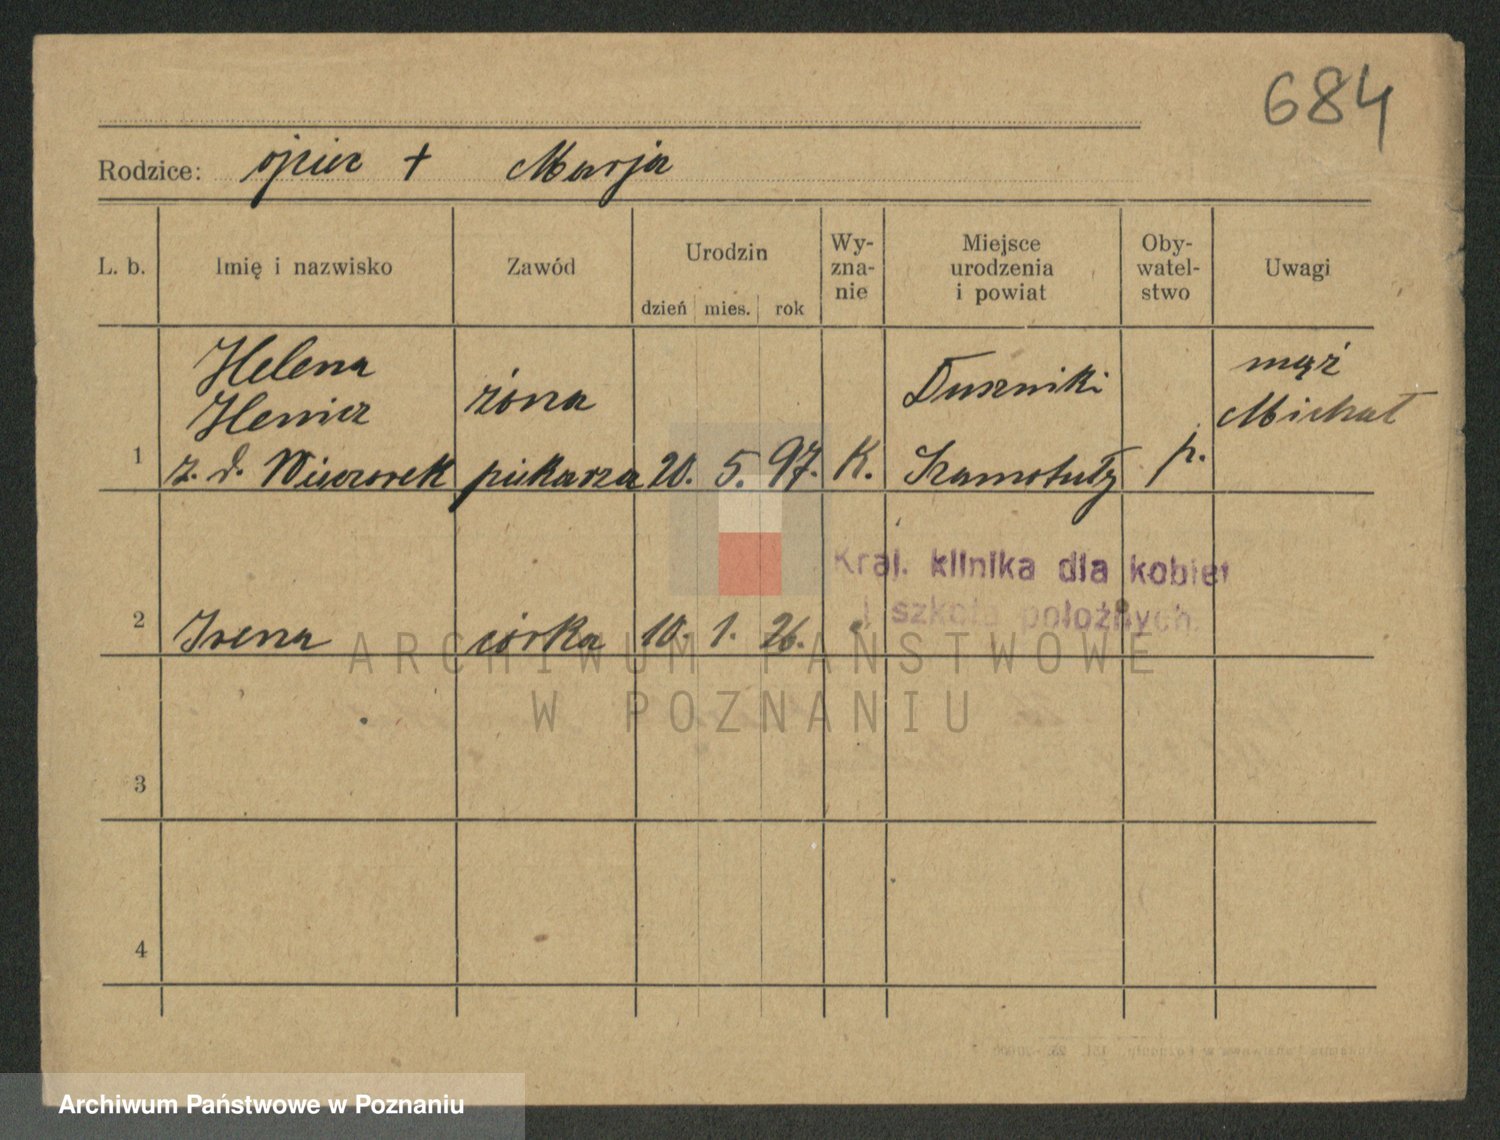 684
Rodzice: ojciec + Marja
L. b.
Imię i nazwisko
Zawód
Urodzin
dzień mies. rok
Wy-
zna-
nie
Miejsce
urodzenia
i powiat
Oby-
watel-
stwo
Uwagi
Helena
Henicz
1 z. d. Wieczorek
żona
piekarza
20. 5. 97.
K.
Duszniki
Szamotuły
p.
mąż
Michał
Kral. klinika dla kobiet
i szkoła położnych.
2 Irena córka 10. 1. 26.
ARCHIWUM PAŃSTWOWE
W POZNANIU
3
4
Archiwum Państwowe w Poznaniu